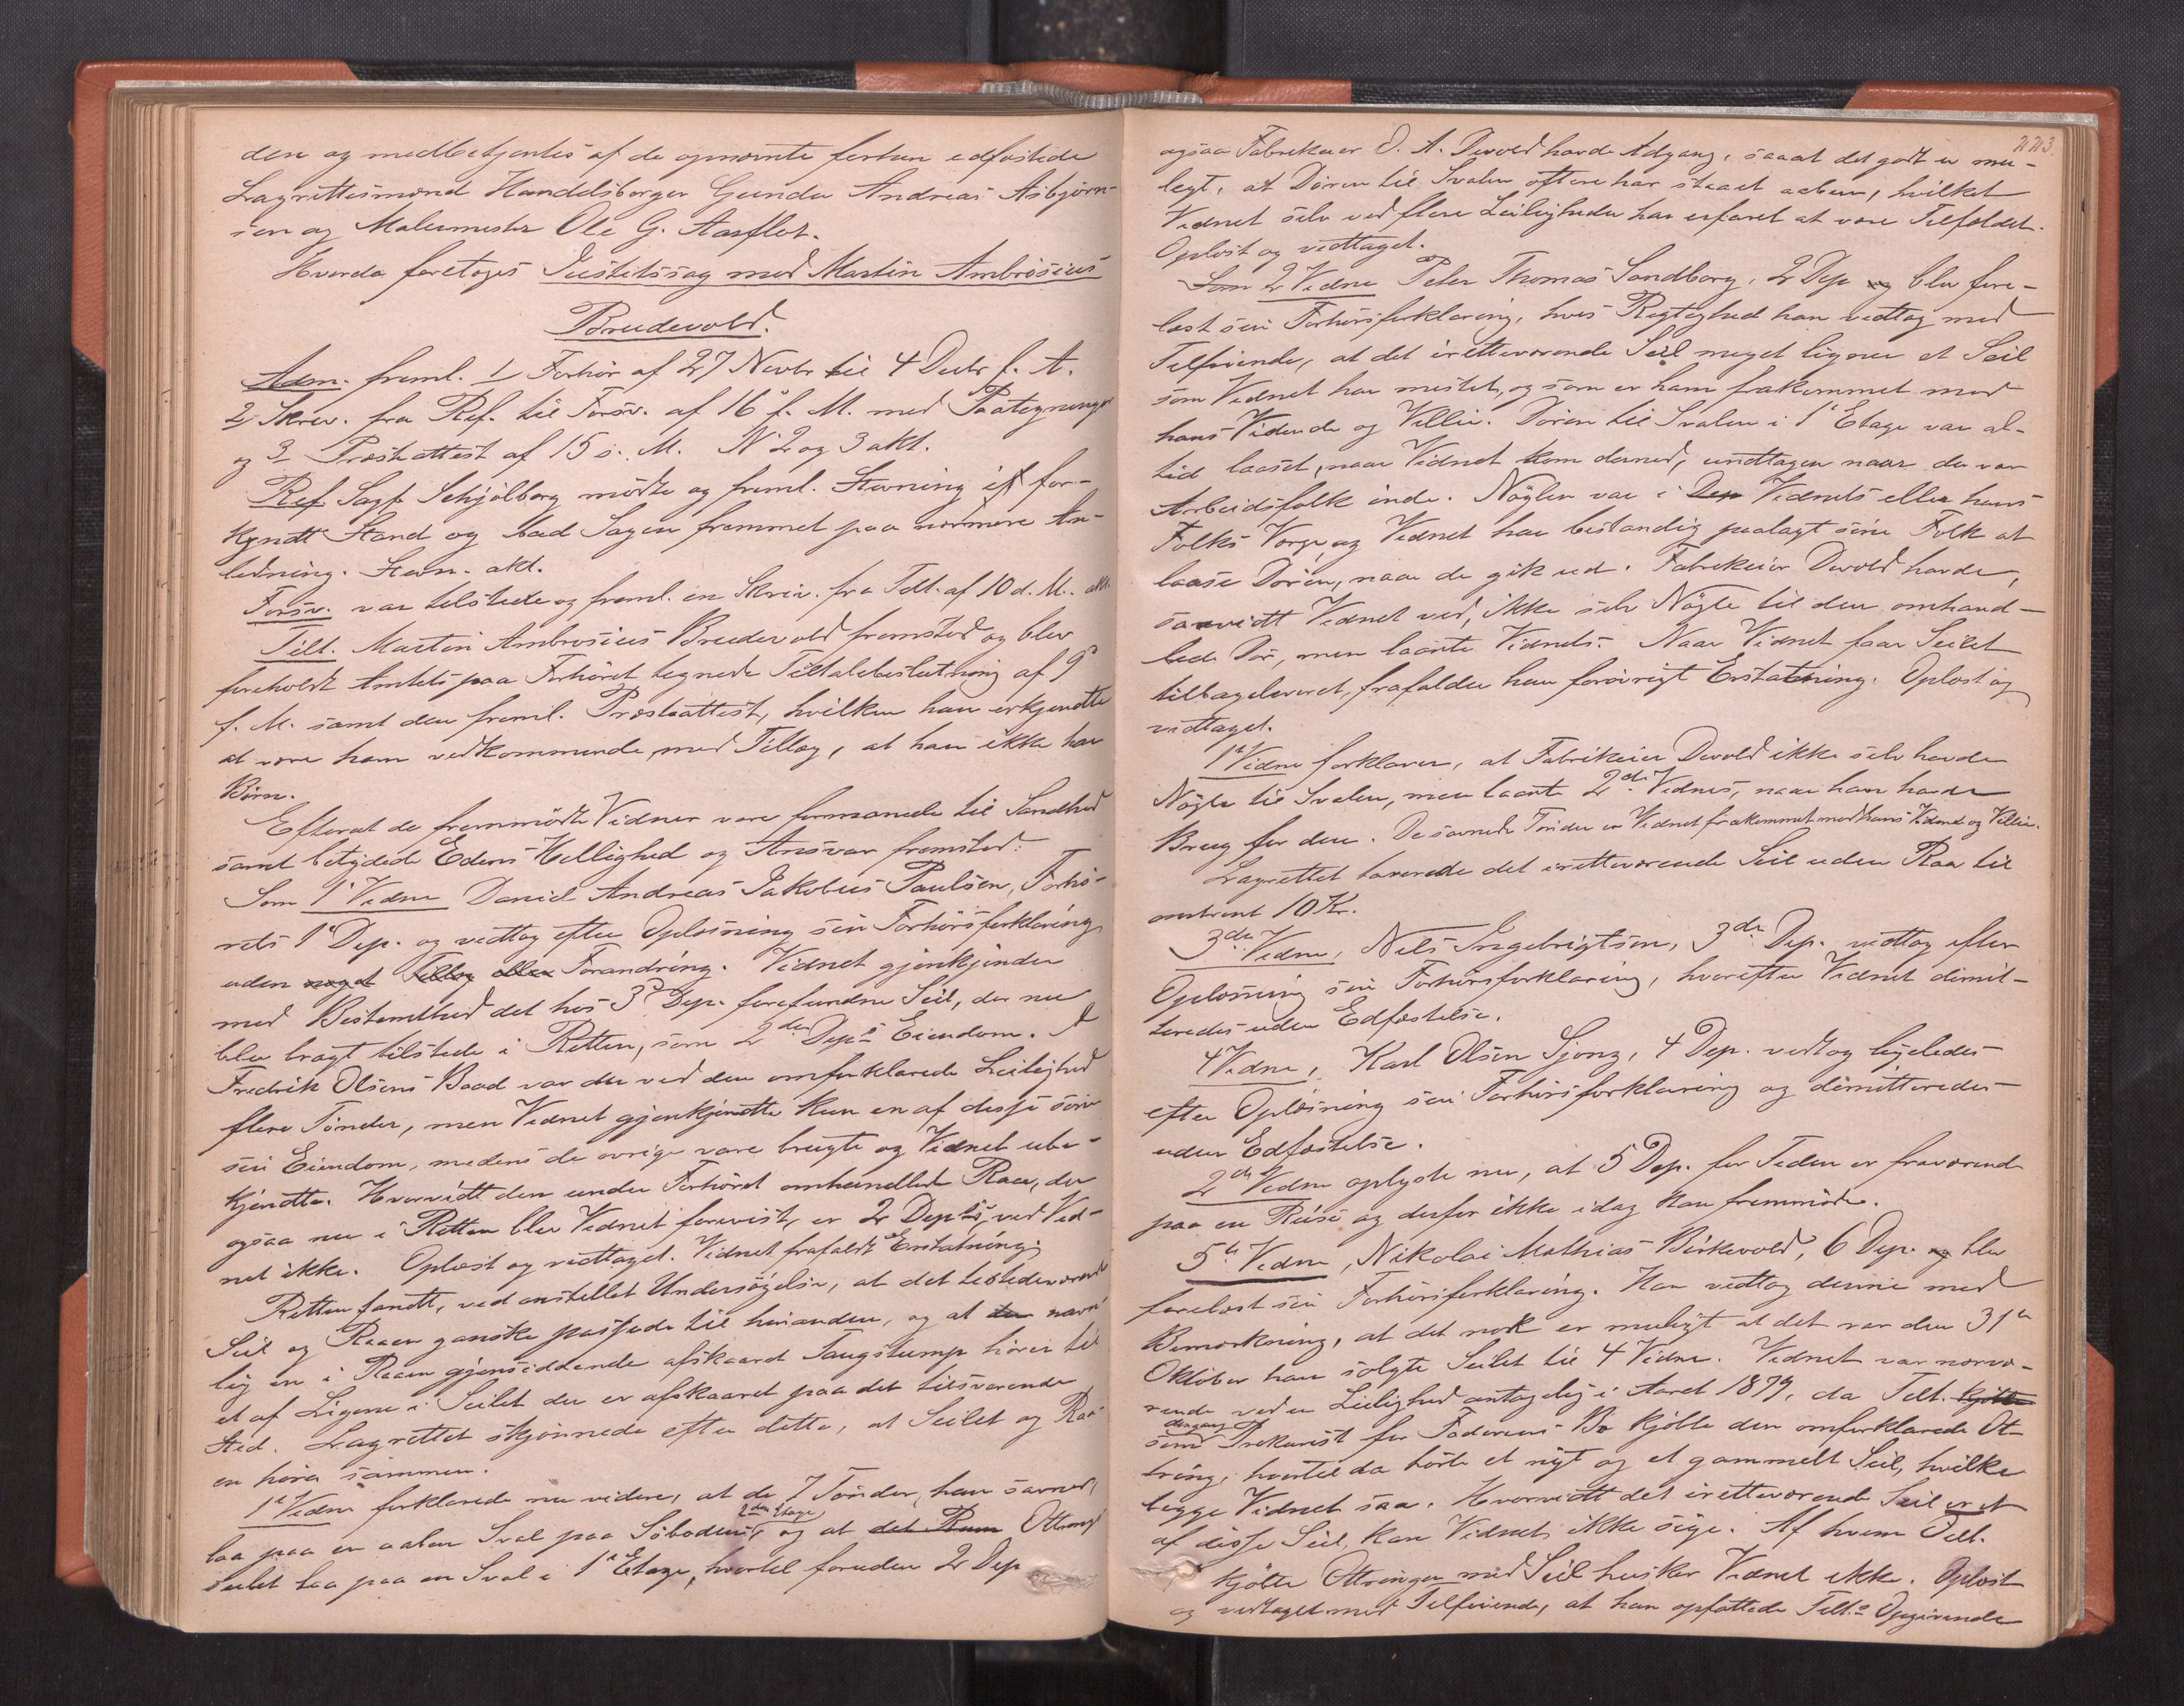 den og medbetjentes af de opnævnte fortun edfæstede
Lagrettesmænd Handelsborger Gunder Andreas Asbjørn-
sen og Malermester Ole G. Aarflot.
Hvorda foretoges Justitssag mod Martin Ambrosius
Brudevold.
Adm. freml. 1/ Forhør af 27 Novbr til 4 Decbr f. A.
2/ Skriv. fra Ref. til Forsv. af 16 f. M. med Paategninger
og 3/ Præsteattest af 15 s. M. N 2 og 3 akt.
Ref. Sagf. Schjølberg mødte og freml. Stevning i for-
kyndt Stand og bad Sagen fremmet paa nærmere An-
ledning. Stevn. akt.
Forsv. var tilstede og freml. en Skriv. fra Tilt. af 10 d. M. akt.
Tilt. Martin Ambrosius Brudevold fremstod og blev
foreholdt Amtets paa Forhøret tegnede Tiltalebeslutning af 9
f. M. samt den freml. Præsteattest, hvilken han erkjendte
at være ham vedkommende, med Tillæg, at han ikke har
Børn.
Efterat de fremmødte Vidner vare formanede til Sandhed
samt betydede Edens Hellighed og Ansvar fremstod:
Som 1 Vidne David Andreas Jakobus Paulsen, Forhø-
rets 1 Dep. og vedtog efter Oplæsning sin Forhørsforklaring
uden noget Tillæg eller Forandring. Vidnet gjenkjender
med Bestemthed det hos 3 Dep. forefundne Seil, der nu
blev bragt tilstede i Retten, som 2den Dep.s Eiendom. I
Fredrik Olsens Baad var der ved den omforklarede Leilighed
flere Tønder, men Vidnet gjenkjendte kun en af disse som
sin Eiendom, medens de øvrige vare brugte og Vidnet ube-
kjendte. Hvorvidt den under Forhøret omhandlede Raa, der
ogsaa nu i Retten blev Vidnet forevist, er 2 Dep.s, ved Vid-
net ikke. Oplæst og vedtaget. Vidnet frafaldt Erstatning.
Retten fandt, ved anstillet Undersøgelse, at det tilstedeværende
Seil og Raaen ganske passede til hinanden, og at den navn-
lig en i Raaen gjensiddende afskaaret Taugstump hører til
et af Ligene i Seilet der er afskaaret paa det tilsvarende
Sted. Lagrettet skjønnede efter dette, at Seilet og Raa-
en hører sammen.
1 Vidne forklarede nu videre, at de 7 Tønder, han savned,
2den Etage
laa paa en aaben Sval paa Søboden, og at det Rum Ottrings
seilet laa paa en Sval i 1 Etage, hvortil foruden 2 Dep
223.
ogsaa Fabrikeier O. A. Devold havde Adgang, saaat det godt er mu-
legt, at Døren til Svalen oftere har staaet aaben, hvilket
Vidnet selv ved flere Leiligheder har erfaret at være Tilfældet.
Oplæst og vedtaget.
Som 2 Vidne Peter Thomas Sandborg, 2 Dep og blev fore-
læst sin Forhørsforklaring, hvis Rigtighed han vedtog med
Tilføiende, at det iretteværende Seil meget ligner et Seil
som Vidnet har mistet, og som er ham frakommet mod
hans Vidende og Villie. Døren til Svalen i 1 Etage var al-
tid laaset, naar Vidnet kom derned, undtagen naar der var
Arbeidsfolk inde. Nøglen var i Dep Vidnets eller hans
Folks Værge, og Vidnet har bestandig paalagt sine Folk at
laase Døren, naar de gik ud. Fabrikeier Devold havde,
saavidt Vidnet ved, ikke selv Nøgle til den omhand-
lede Dør, men laante Vidnets. Naar Vidnet faar Seilet
tilbageleveret, frafalder han forøvrigt Erstatning. Oplæst og
vedtaget.
1 Vidne forklarer, at Fabrikeier Devold ikke selv havde
Nøgle til Svalen, men laante 2det Vidnes, naar han havde
Brug for den. De savnede Tønder er Vidnet frakommet mod hans Vidende og Villie.
Lagrettet taxerede det iretteværende Seil uden Raa til
omtrent 10 Kr.
3die Vidne, Nils Ingebrigtsen, 3die Dep. vedtog efter
Oplæsning sin Forhørsforklaring, hvorefter Vidnet dimit-
teredes uden Edfæstelse.
4 Vidne, Karl Olsen Sjong, 4 Dep. vedtog ligeledes
efter Oplæsning sin Forhørsforklaring og dimitteredes
uden Edfæstelse.
2det Vidne oplyste nu, at 5 Dep. for Tiden er fraværende
paa en Reise og derfor ikke idag kan fremmøde.
5te Vidne, Nikolai Mathias Birkevold, 6 Dep. og blev
forelæst sin Forhørsforklaring. Han vedtog denne med
Bemærkning, at det nok er muligt at det var den 31
Oktober han solgte Seilet til 4 Vidne. Vidnet var nærvæ-
rende ved en Leilighed antagelig i Aaret 1879, da Tilt. kjøbte
dengang
som Prokurist for Faderens Bo kjøbte den omforklarede Ot-
tring, hvortil da hørte et nyt og et gammelt Seil, hvilke
begge Vidnet saa. Hvorvidt det iretteværende Seil er et
af disse Seil, kan Vidnet ikke sige. Af hvem Tilt.
kjøbte Ottringen med Seil husker Vidnet ikke. Oplæst
og vedtaget med Tilføiende, at han opfattede Tilt.s Opgivende